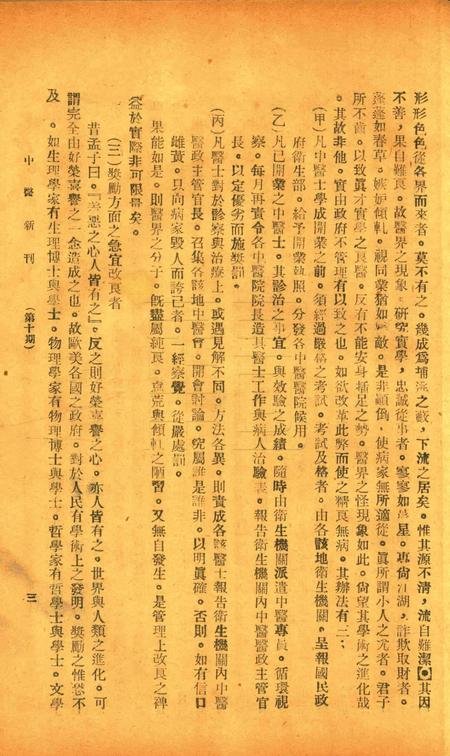 形形色色從各界而來者。莫不有之。幾成爲埔淤之藪，下流之居矣。惟其源不清，流自難潔●其因
不善，果自難良。故醫界之現象。研究實學，忠誠從事者。寥寥如晨星。專尙江湖，詐欺取財者。
蓬蓬如春草。嫉妒傾軋。視同業猶如寇敵。是非顚倒，使病家無所適從。眞所謂小人之尤者。君子
所不齒。以致眞才實學之良醫。反有不能安身插足之勢。醫界之怪現象如此。尙望其學術之進化哉
。其故非他。實由政府不管理有以致之也。如欲改革此弊而使之精良無病。其辦法有二；
（甲）凡中醫士學成開業之前。須經過嚴格之考試。考試及格者。由各該地衛生機關。呈報國民政
府衛生部。給予開業執照。分發各中醫醫院候用。
（乙）凡已開業之中醫士。其診治之事宜。與效驗之成績。隨時由衛生機關派遣中醫專員。循環視
察。每月再責令各中醫院院長造具醫士工作與病人治驗表。報告衛生機關內中醫醫政主管官
長。以定優劣而施獎罰。
（丙）凡醫士對於診察與治療上。或遇見解不同。方法各異。則責成各該醫士報告衛生機關內中醫
醫政主管官長。召集各該地中醫會。開會討論。究屬誰是誰非。以明眞確。否則。如有信口
雌黃。只向病家毀人而誇己者。一經察覺。從嚴處罰。
果能如是。則醫界之分子。旣盡屬純良。荒與傾軋之陋習。又無自發生。是管理上改良之裨
益於實際非可限量矣。
（三）獎勵方面之急宜改良者
昔孟子曰。『羞惡之心人皆有之』。反之則好榮喜譽之心。亦人皆有之。世界與人類之進化。可
謂完全由好榮喜譽之一念造成之也。故歐美各國之政府。對於人民有學術上之發明。獎勵之惟恐不
及。如生理學家有生理博士與學士。物理學家有物理博士與學士。哲學家有哲學士與學士。文學
中醫新刊　（第十期）　三